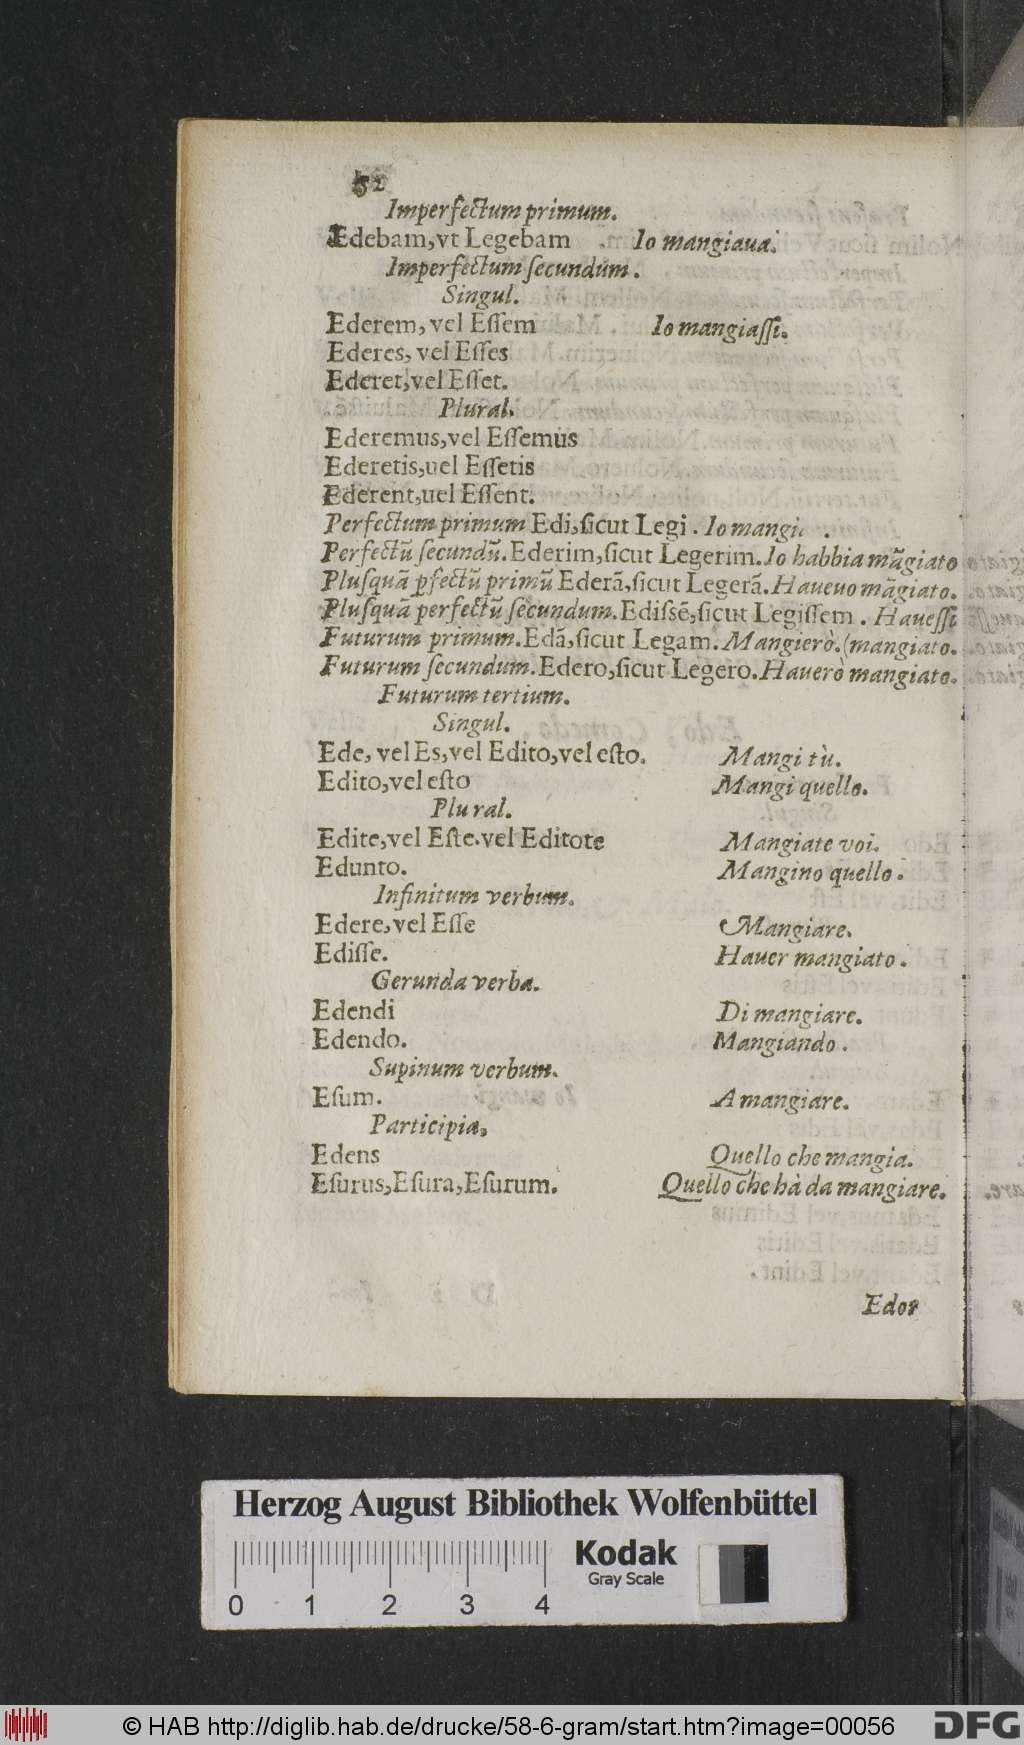 52
Imperfectum primum.
Edebam, vt Legebam . Io mangiaua.
Imperfectum secundum.
Singul.
Ederem, vel Essem Io mangiassi.
Ederes, vel Esses
Ederet, vel Esset.
Plural.
Ederemus, vel Essemus
Ederetis, uel Essetis
Ederent, uel Essent.
Perfectum primum Edi, sicut Legi . Io mangi .
Perfectū secundū. Ederim, sicut Legerim. Io habbia māgiato
Plusquā pfectū primū Ederā, sicut Legerā. Haueuo māgiato.
Plusquā perfectū secundum. Edissē, sicut Legissem . Hauessi
Futurum primum. Edā, sicut Legam. Mangierò. (mangiato.
Futurum secundum. Edero, sicut Legero. Hauerò mangiato.
Futurum tertium.
Singul.
Ede, vel Es, vel Edito, vel esto. Mangi tù.
Edito, vel esto Mangi quello.
Plural.
Edite, vel Este. vel Editote Mangiate voi.
Edunto. Mangino quello .
Infinitum verbum.
Edere, vel Esse Mangiare.
Edisse. Hauer mangiato .
Gerunda verba.
Edendi Di mangiare.
Edendo. Mangiando .
Supinum verbum.
Esum. A mangiare.
Participia,
Edens Quello che mangia.
Esurus, Esura, Esurum. Quello che hà da mangiare.
Edor
Herzog August Bibliothek Wolfenbüttel
Kodak
Gray Scale
0 1 2 3 4
© HAB http://diglib.hab.de/drucke/58-6-gram/start.htm?image=00056
DFG